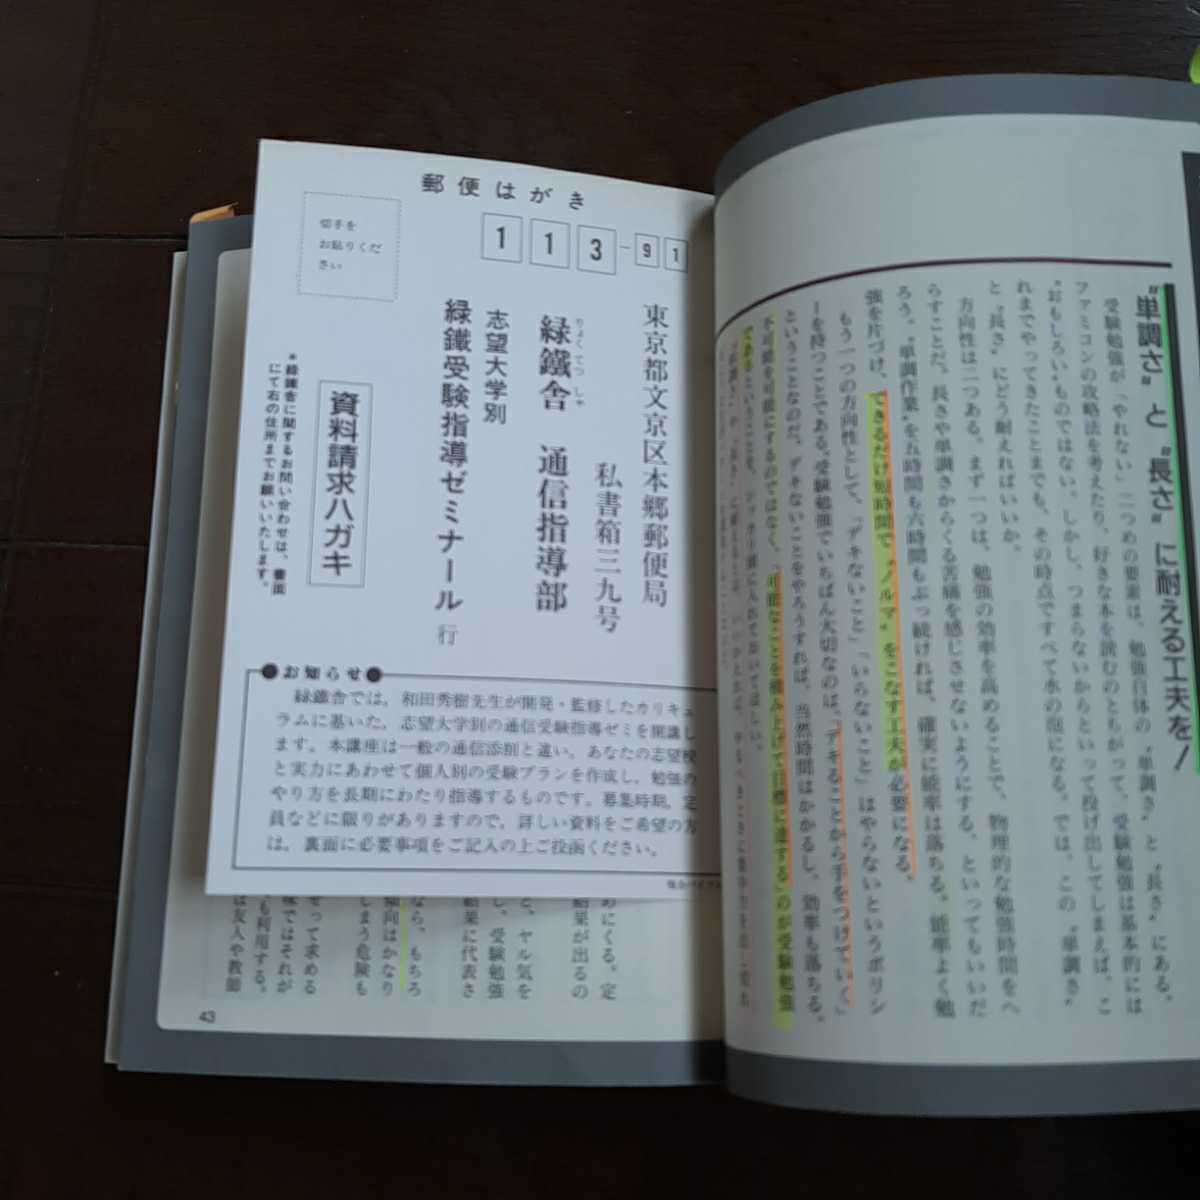 郵便はがき
切手を
お貼りくだ
さい
113-91
東京都文京区本郷郵便局
私書箱三九号
りょくてつしゃ
緑鐵舎 通信指導部
志望大学別
緑鐵受験指導ゼミナール 行
資料請求ハガキ
*緑鐵舎に関するお問い合わせは、書面
にて右の住所までお願いいたします。
お知らせ
緑鐵舎では、和田秀樹先生が開発・監修したカリキュ
ラムに基いた、志望大学別の通信受験指導ゼミを開講し
ます。本講座は一般の通信添削と違い、あなたの志望校
と実力にあわせて個人別の受験プランを作成し、勉強の
やり方を長期にわたり指導するものです。募集時期、定
員などに限りがありますので、詳しい資料をご希望の方
は、裏面に必要事項をご記入の上ご投函ください。
"単調さ"と"長さ"に耐える工夫を!
受験勉強が「やれない」二つめの要素は、勉強自体の"単調さ"と"長さ"にある。
ファミコンの攻略法を考えたり、好きな本を読むのとちがって、受験勉強は基本的には
"おもしろい"ものではない。しかし、つまらないからといって投げ出してしまえば、こ
れまでやってきたことまでも、その時点ですべて水の泡になる。では、この"単調さ"
と"長さ"にどう耐えればいいか。
方向性は二つある。まず一つは、勉強の効率を高めることで、物理的な勉強時間をへ
らすことだ。長さや単調さからくる苦痛を感じさせないようにする、といってもいいだ
ろう。"単調作業"を五時間も六時間もぶっ続ければ、確実に能率は落ちる。能率よく勉
強を片づけ、できるだけ短時間で"ノルマ"をこなす工夫が必要になる。
もう一つの方向性として、「デキないこと」「いらないこと」はやらないというポリシ
ーを持つことである。受験勉強でいちばん大切なのは、「デキることから手をつけていく」
ということなのだ。デキないことをやろうすれば、当然時間はかかるし、効率も落ちる。
不可能を可能にするのではなく、「可能なことを積み上げて目標に達する」のが受験勉強
である
めにくる。定
結果が出るの
と、ヤル気を
し、受験勉強
結果に代表さ
なら、もちろ
傾向はかなり
しまう危険も
せって求める
味ではそれが
も利用する。
は友人や教師
43